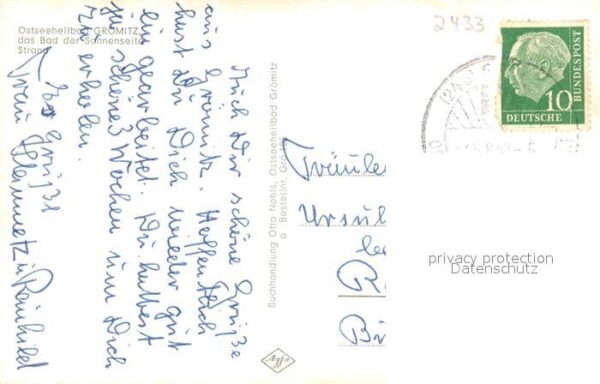 Ostseeheilbad GRÖMITZ
das Bad der Sonnenseite
Strand
2433
10
DEUTSCHE
BUNDESPOST
Auch Dir schöne Grüße
aus Grömitz. Hoffentlich
hast Du Dich wieder gut
eingearbeitet. Du hattest
ja schöne 3 Wochen um Dich
zu erholen.
Es grüßt
Frau und Reinhild
Buchhandlung Otto Nehls, Ostseeheilbad Grömitz
Bestellnr.
Fräulei
Ursul
privacy protection
Datenschutz